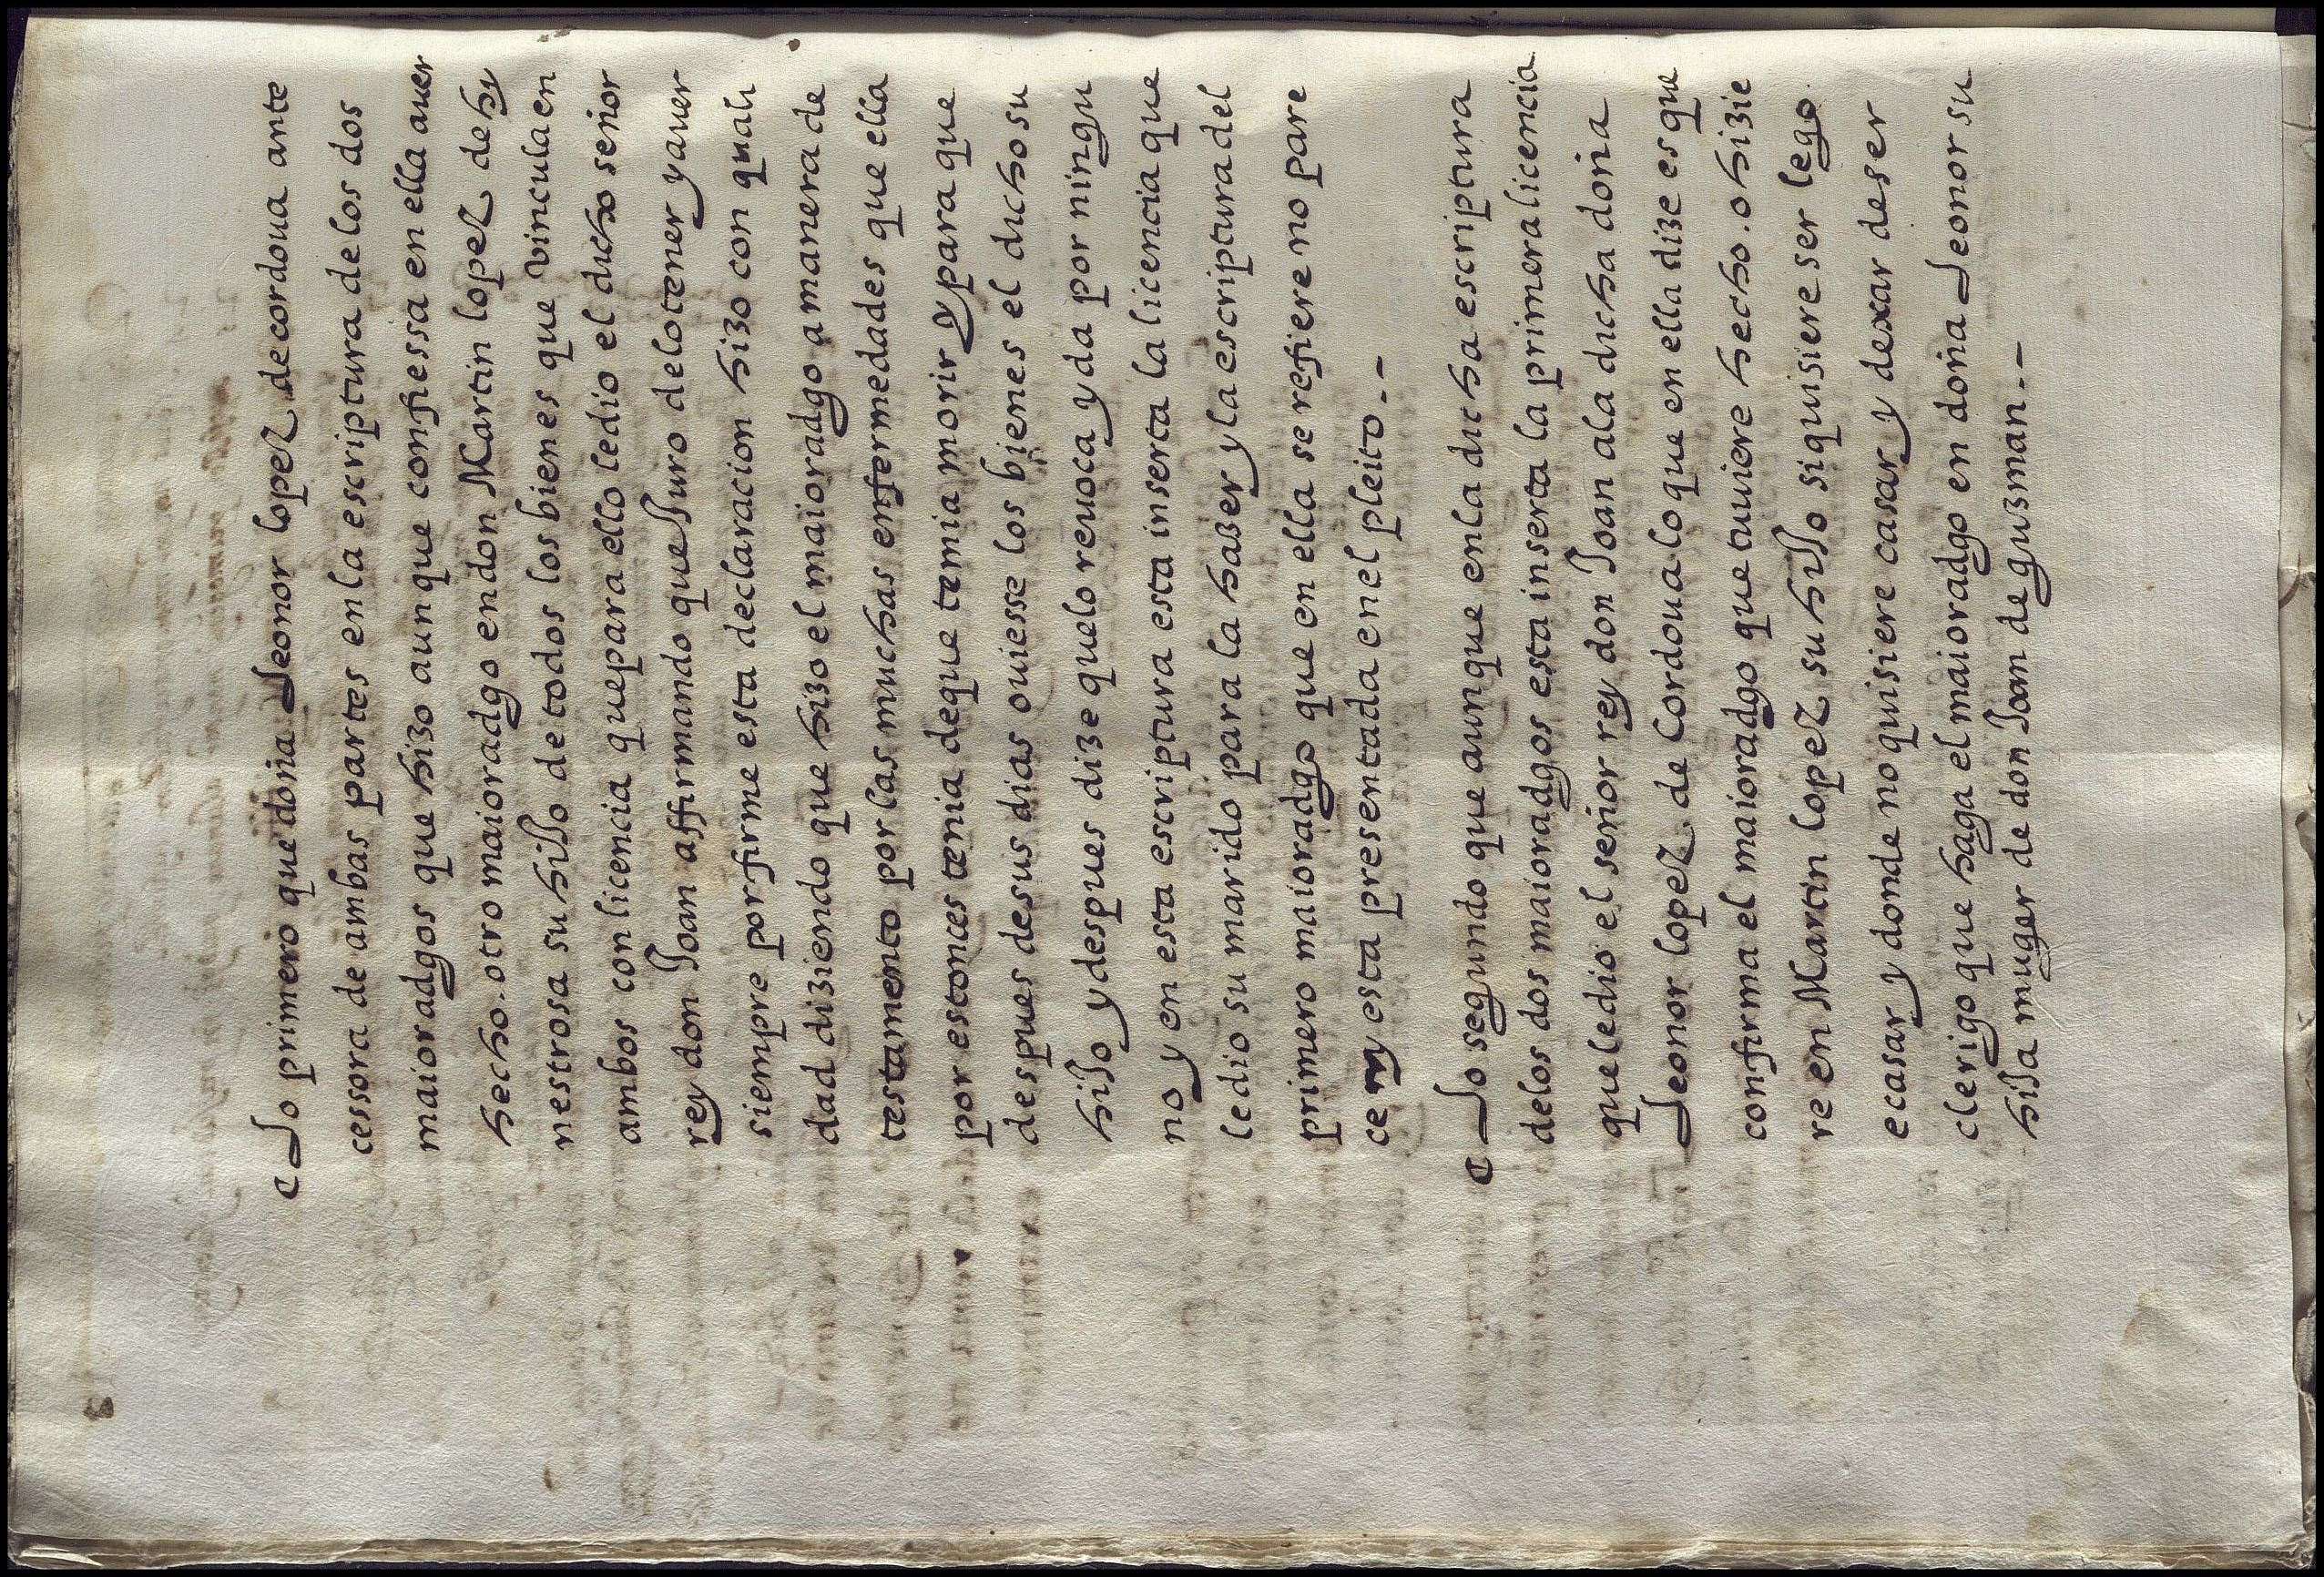 Lo primero que doña Leonor lopez de cordoua ante
cessora de ambas partes en la escriptura de los dos
maioradgos que hizo aunque confiessa en ella auer
hecho. otro maioradgo en don Martin lopez de hy
nestrosa su hijo de todos los bienes que vincula en
ambos con licencia que para ello le dio el dicho señor
rey don Joan affirmando que Juro de lo tener y auer
siempre por firme esta declaracion hizo con quali
dad diziendo que hizo el maioradgo a manera de
testamento por las muchas enfermedades que ella
por estonces tenia de que temia morir y para que
despues de sus dias ouiesse los bienes el dicho su
hijo y despues dize que lo reuoca y da por ningu
no y en esta escriptura esta inserta la licencia que
le dio su marido para la hazer y la escriptura del
primero maioradgo que en ella se refiere no pare
ce ny esta presentada en el pleito.-
Lo segundo que aunque en la dicha escriptura
de los dos maioradgos esta inserta la primera licencia
que le dio el señor rey don Joan a la dicha doña
Leonor lopez de Cordoua lo que en ella dize es que
confirma el maioradgo que tuuiere hecho. o hizie
re en Martin lopez su hijo si quisiere ser lego.
e casar y donde no quisiere casar y dexar de ser
clerigo que haga el maioradgo en doña Leonor su
hija muger de don Joan de guzman.-